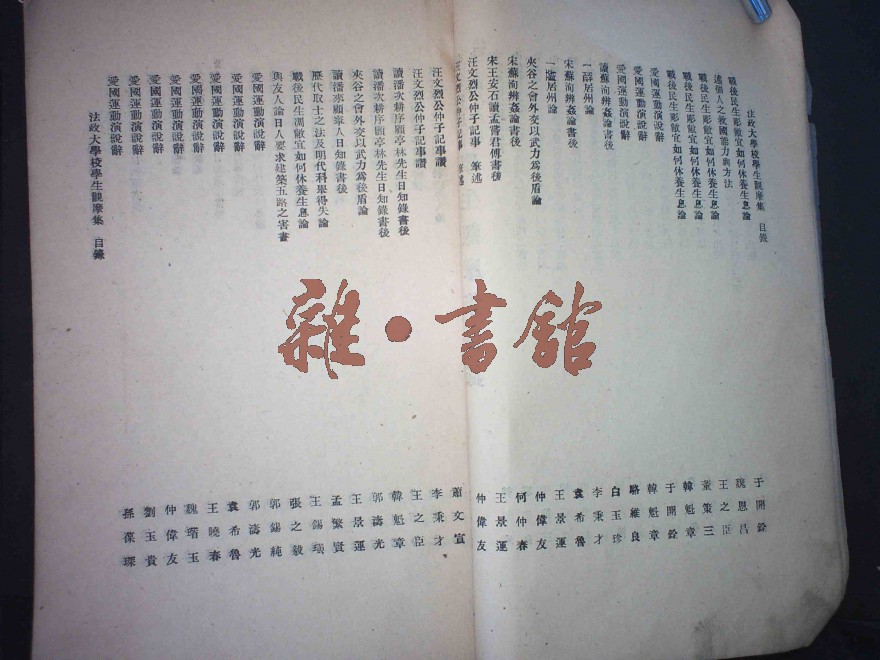 法政大學校學生觀摩集 目錄
戰後民生彫敝宜如何休養生息論
述個人之救國能力與方法
戰後民生彫敝宜如何休養生息論
戰後民生彫敝宜如何休養生息論
戰後民生彫敝宜如何休養生息論
愛國運動演說辭
愛國運動演說辭
愛國運動演說辭
讀蘇洵辨姦論書後
一薛居州論
宋蘇洵辨姦論書後
一薛居州論
夾谷之會外交以武力爲後盾論
宋蘇洵辨姦論書後
宋王安石讀孟嘗君傳書後
汪文烈公仲子記事 筆述
于開銓
魏恩昌
王之臣
董策三
韓魁章
于開銓
韓魁章
駱維良
白玉珍
李秉才
袁希魯
王景運
仲偉友
何仲春
王景運
仲偉友
汪文烈公仲子記事讚
汪文烈公仲子記事讚
讀潘次耕序顧亭林先生日知錄書後
讀潘次耕序顧亭林先生日知錄書後
夾谷之會外交以武力爲後盾論
讀潘序顧寧人日知錄書後
歷代取士之法及明代科舉得失論
戰後民生凋敝宜如何休養生息論
與友人論日人要求建築五路之害書
愛國運動演說辭
愛國運動演說辭
愛國運動演說辭
愛國運動演說辭
愛國運動演說辭
愛國運動演說辭
愛國運動演說辭
法政大學校學生觀摩集 目錄
蕭文宣
李秉才
王之臣
韓魁章
郭濤光
王景運
孟繁賢
王錫
張之毅
郭錫純
郭濤光
袁希魯
王曉春
魏瑨玉
仲偉友
劉玉貴
孫葆琛
雜·書館